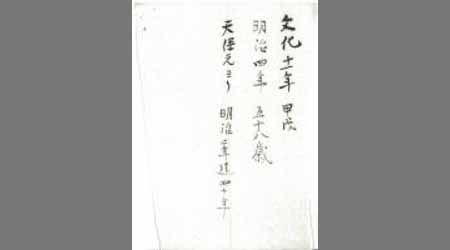 文化十一年 甲戌
明治四年 五十八歳
天保元ヨリ 明治二年迄四十年